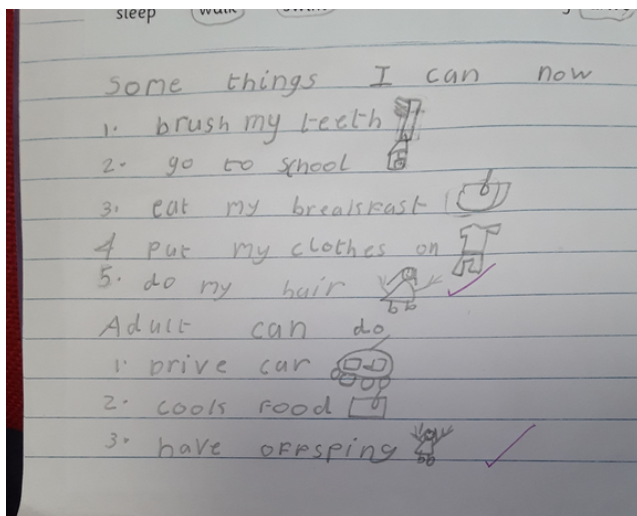 sleep walk swim
some things I can now
1. brush my teeth
2. go to school
3. eat my breakfast
4 put my clothes on
5. do my hair
Adult can do
1. Drive car
2. cook food
3. have offsping